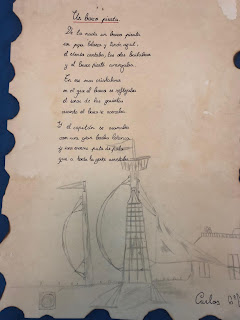 Un barco pirata.
De la nada un barco pirata
con popa blanca y timón azul,
el viento cantaba, las olas bailaban
y el barco pirata avanzaba.
En ese mar cristalino
en el que el barco se reflejaba
el sonar de las gaviotas
cuando el barco se acercaba.
Y el capitán se asomaba
con una gran barba blanca
y una enorme pata de palo
que a toda la gente asustaba.
Carlos 6º